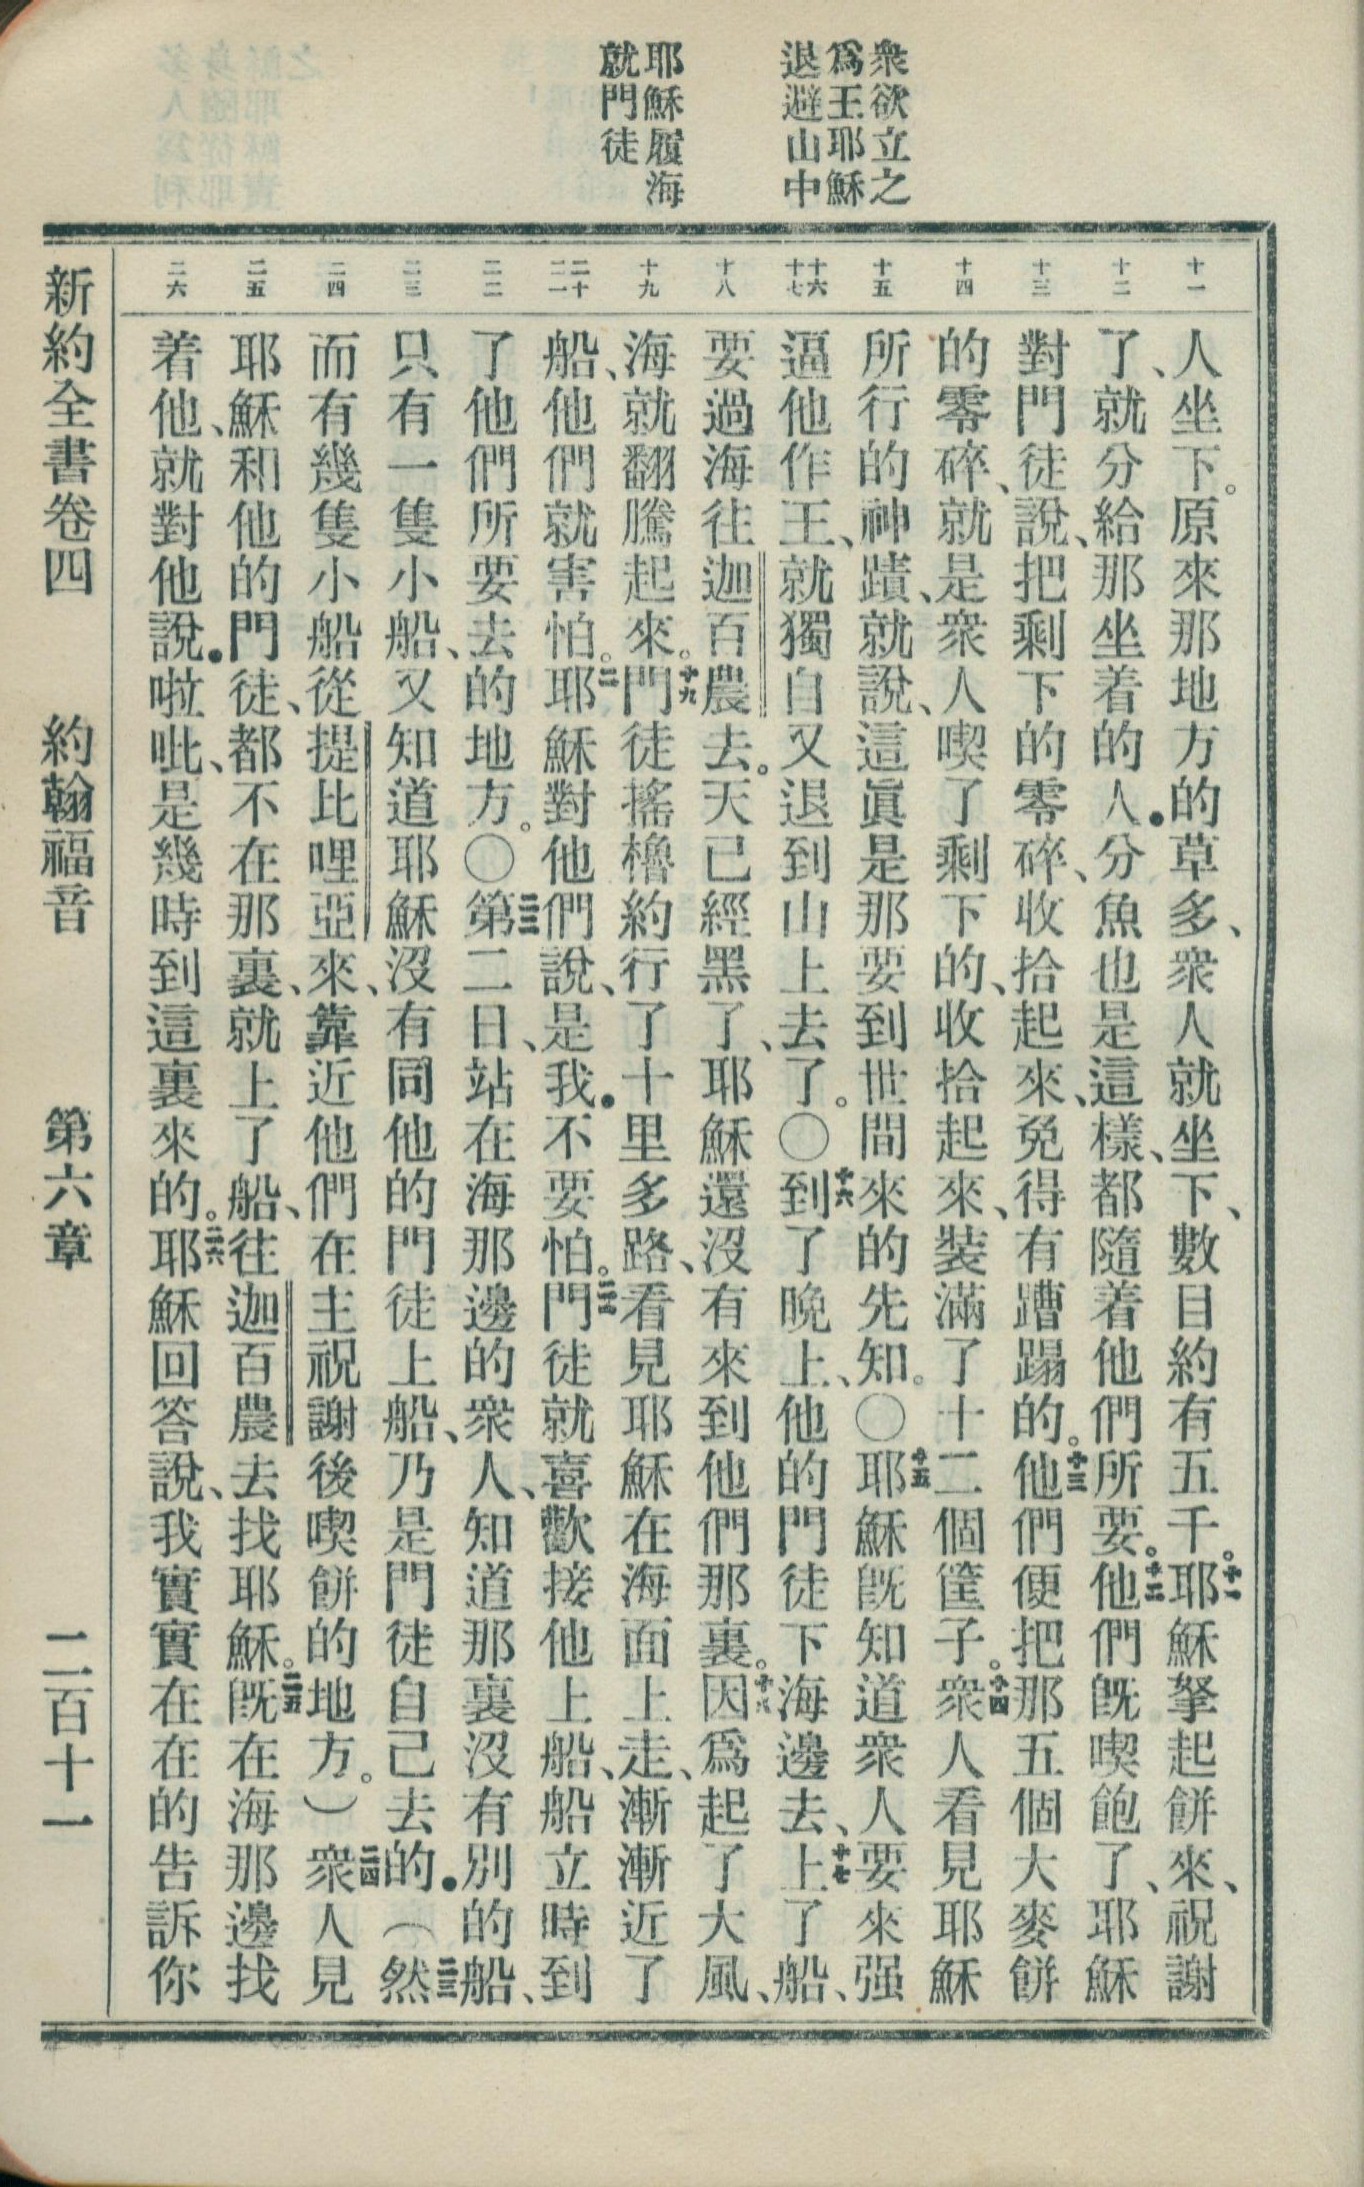 衆欲立之
爲王耶穌
退避山中
耶穌履海
就門徒
十一
十二
十三
十四
十五
十六
十七
十八
十九
二十
二一
二二
二三
二四
二五
二六
人坐下。原來那地方的草多、衆人就坐下、數目約有五千。十一耶穌拏起餅來、祝謝
了、就分給那坐着的人．分魚也是這樣、都隨着他們所要。十二他們旣喫飽了、耶穌
對門徒說、把剩下的零碎、收拾起來、免得有蹧蹋的。十三他們便把那五個大麥餅
的零碎、就是衆人喫了剩下的、收拾起來、裝滿了十二個筐子。十四衆人看見耶穌
所行的神蹟、就說、這眞是那要到世間來的先知。〇十五耶穌旣知道衆人要來强
逼他作王、就獨自又退到山上去了。〇十六到了晚上、他的門徒下海邊去、十七上了船、
要過海往迦百農去。天已經黑了、耶穌還沒有來到他們那裏。十八因爲起了大風、
海就翻騰起來。十九門徒搖櫓約行了十里多路、看見耶穌在海面上走、漸漸近了
船、他們就害怕。二十耶穌對他們說、是我．不要怕。二一門徒就喜歡接他上船、船立時到
了他們所要去的地方。〇二二第二日、站在海那邊的衆人、知道那裏沒有別的船、
只有一隻小船、又知道耶穌沒有同他的門徒上船、乃是門徒自己去的．（二三然
而有幾隻小船、從提比哩亞來、靠近他們在主祝謝後喫餅的地方。）二四衆人見
耶穌和他的門徒、都不在那裏、就上了船、往迦百農去找耶穌。二五旣在海那邊找
着他、就對他說．啦吡、是幾時到這裏來的。二六耶穌回答說、我實實在在的告訴你
新約全書卷四 約翰福音 第六章 二百十一